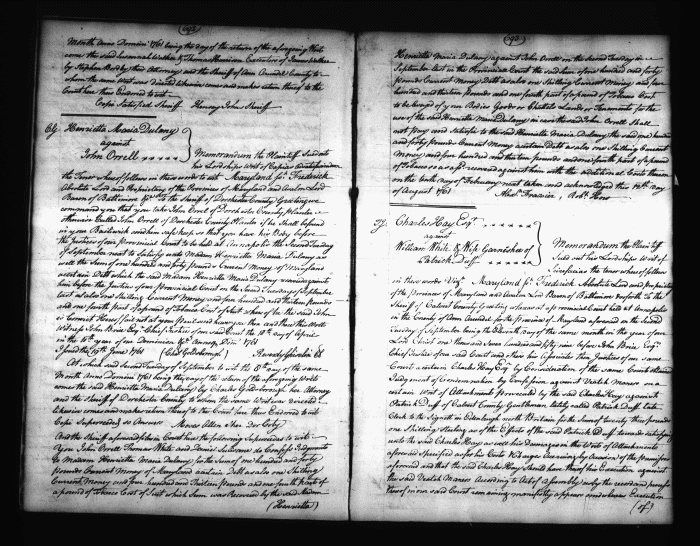 Month Anno Domini 1761 being the day of the return of the aforegoing Writ
came the said Susannah & Thomas Harrison Executors of James
by Stephen Bordley their Attorney and the Sheriff of Ann Arundel County to
whom the same Writ was directed likewise comes and makes return thereof to the
Court here thus Endorsed to wit
Copia Satisfied Sheriff Henry John Sheriff
Henrietta Maria Dulany
against
John Orrell
Memorandum the Plaintiff Sued out
his Lordships Writ of Capias ad satisfaciendum
the Tenor whereof follows in these words to wit Maryland ss. Frederick
Absolute Lord and Proprietary of the Provinces of Maryland and Avalon Lord
Baron of Baltimore &c To the Sheriff of Dorchester County Greeting we
command you that you take John Orrel of Dorchester County Planter
otherwise Called John Orrell of Dorchester County Planter if he Shall be found
in your Bailiwick and him safe keep so that you have his Body before
the Justices of our Provincial Court to be held at Annapolis the Second Tuesday
of September next to satisfy unto Madam Henrietta Maria Dulany as
well the Sum of one hundred and forty pounds Current Money of Maryland
a certain Debt which the said Madam Henrietta Maria Dulany recovered against
him before the Justices of our Provincial Court on the Second Tuesday of September
Last as also one Shilling Current Money and four hundred and thirteen pounds
and one fourth part of a pound of Tobacco Cost of Suit whereof he the said John
is Convict Hereof fail not at your Peril and have you there this Writ
Witness John Brice Esq. Chief Justice of our said Court the 18th day of April
in the year of our Dominion &c Annoq Dom. 1761
Issued the 19th June 1761 (Chas Goldsborough) Reverdy Ghiselin Clk
At which said Second Tuesday of September to wit the 8th day of the same
Month Anno Domini 1761 being the day of the return of the aforegoing Writ
comes the said Henrietta Maria Dulany by Charles Goldsborough her Attorney
and the Sheriff of Dorchester County to whom the same Writ was directed
likewise comes and makes return thereof to the Court here thus Endorsed to wit
Copia Superseded so Answers Moses Allen Sher Dor Coty
And the Sheriff aforesaid files in Court here the following Supersedeas to wit
You John Orrell Thomas White and Daniel Sulivane do Confess Judgment
to Madam Henrietta Maria Dulany for the Sum of one hundred and forty
pounds Current Money of Maryland a certain Debt as also one Shilling
Current Money and four hundred and thirteen pounds and one fourth part of
a pound of Tobacco Cost of Suit which Sum was Recovered by the said Madam
(Henrietta)
Henrietta Maria Dulany against John Orrell on the second Tuesday in
September Last in the Provincial Court the said Sum of one hundred and forty
pounds Current Money Debt as also one Shilling Current Money and four
hundred and thirteen pounds and one fourth part of a pound of Tobacco Cost
to be levyed of your Bodies Goods or Chattels Lands or Tenements for the
use of the said Henrietta Maria Dulany in case the said John Orrell Shall
not pay and satisfie to the said Henrietta Maria Dulany the said one hundred
and forty pounds Current Money a certain Debt as also one Shilling Current
Money and four hundred and thirteen pounds and one fourth part of a pound
of Tobacco as aforesaid recovered against him with the addition at Costs thereon
on the tenth day of February next taken and acknowledged this 12th day
of August 1761
Charles Hay Esqr.
against
William White & Wife Garnishee of
Patrick Duff
Memorandum the Plaintiff
Sued out his Lordships Writ of
Scire facias the tenor whereof follows
in these words Vizt. Maryland ss. Frederick Absolute Lord and proprietary
of the provinces of Maryland and Avalon Lord Baron of Baltimore &c to the
Sheriff of Calvert County Greeting whereas at a provincial Court held at Annapolis
in the County of Ann Arundel for the Province of Maryland aforesaid on the Second
Tuesday of September being the Eleventh day of the same month in the year of our
Lord Christ one thousand Seven hundred and fifty nine before John Brice Esqr.
Chief Justice of our said Court and other his Associates then Justices of our same
Court a certain Charles Hay Esq by Consideration of the same Court obtained
Judgment of Condemnation by Confession against Uriah Maners on a
certain Writ of Attachment Prosecuted by the said Charles Hay against
Patrick Duff of Calvert County Gentleman lately called Patrick Duff Late
Clerk to the Signett in Edinburgh North Britain for the Sum of twenty three pounds
one Shilling Sterling as of the Effects of the said Patrick Duff towards satisfying
unto the said Charles Hay as well his Damages in the Writ of Attachment
aforesaid Specified as for his Costs and Charges Accruing by Occasion of the premises
aforesaid and that the said Charles Hay Should have thereof his Execution against
the said Uriah Maners According to Act of Assembly as by the record and process
thereof in our said Court remaining manifestly appears and whereas Execution
(of)